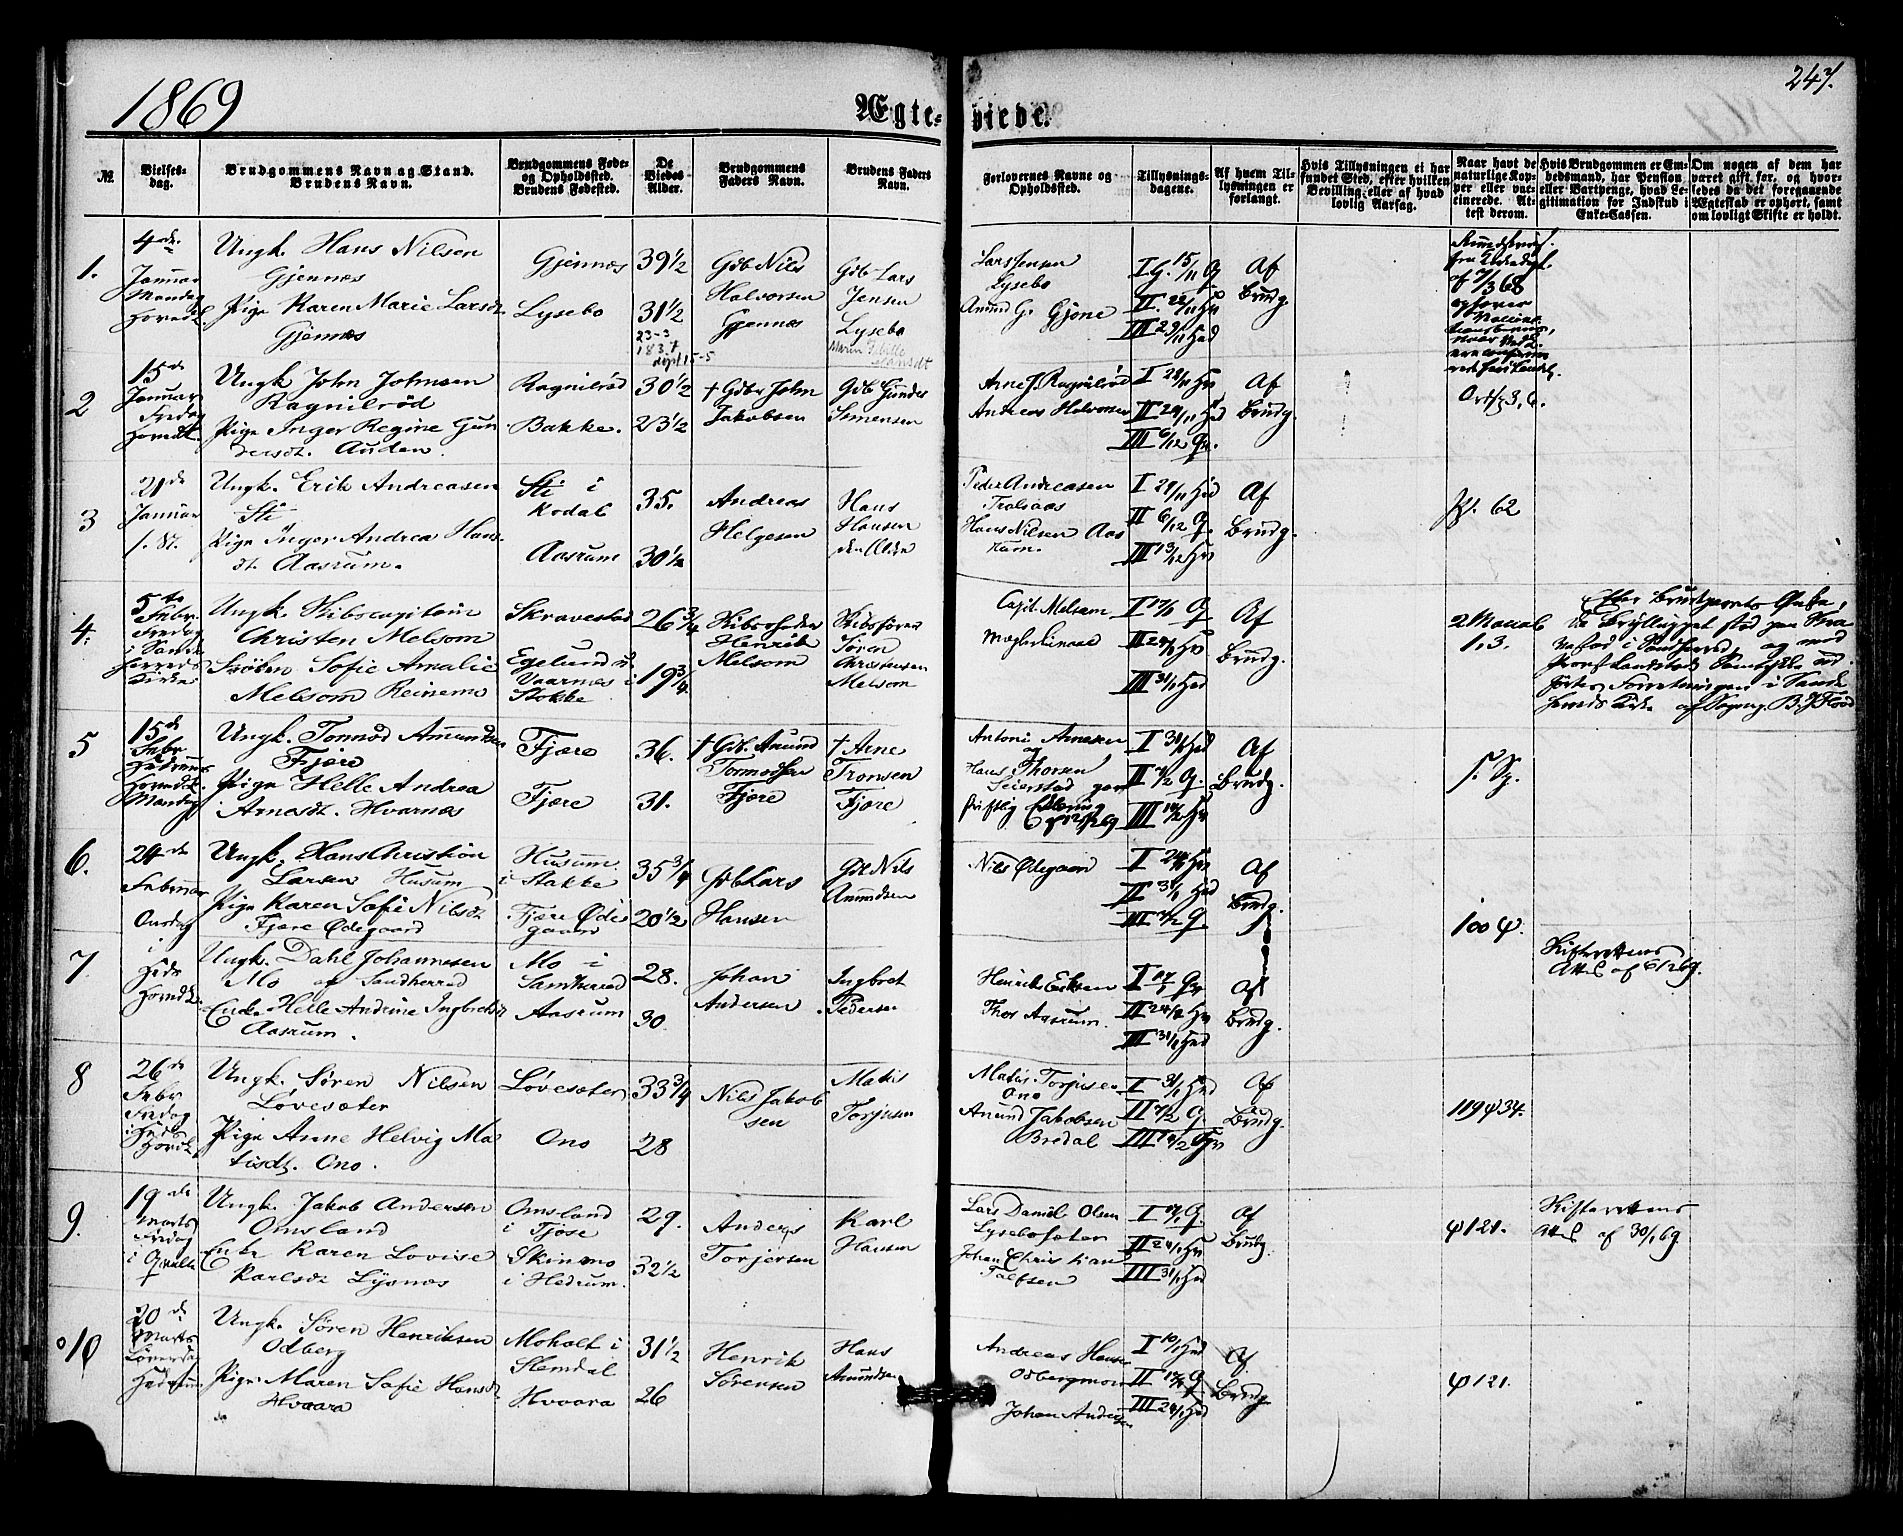 1869
247.
Ægte-viede.
№
Vielses-
dag.
Brudgommens Navn og Stand.
Brudens Navn.
Brudgommens Føde-
og Opholdssted.
Brudens Fødested.
De
Viedes
Alder.
Brudgommens
Faders Navn.
Brudens Faders
Navn.
Forlovernes Navne og
Opholdssted.
Tillysnings-
dagene.
Af hvem Til-
lysningen er
forlangt.
Hvis Tillysningen ei har
fundet Sted, efter hvilken
Bevilling, eller af hvad
lovlig Aarsag.
Naar havt de
naturlige Kop-
per eller vac-
cinerede. At-
test derom.
Hvis Brudgommen er Em-
bedsmand, har Pension
eller Vartpenge, hvad Le-
gitimation for Indskud i
Enke-Cassen.
Om nogen af dem har
været gift før, og hvor-
ledes da det foregaaende
Ægteskab er ophørt, samt
om lovligt Skifte er holdt.
1.
4de
Januar
Mandag
Hovedk.
Ungk. Hans Nilsen
Gjennæs
Pige Karen Marie Larsdt.
Gjennæs
Gjennæs
Lysebo
39 1/2
31 1/2
23-3
1837
døpt 15-5
Gdb Nils
Halvorsen
Gjennæs
Gdb Lars
Jensen
Lysebo
Lars Jensen
Lysebo
Amund G. Gjone
I G. 15/11 G
II. 22/11 Hv
III 29/11 Hed
Af
Brudg.
2
15de
Januar
Fredag
Hovedk.
Ungk John Johnsen
Ragnilrød
Pige Inger Regine Gun
dersdt. Auden.
Ragnilrød
Bakke.
30 1/2
23 1/2
† Gdbr John
Jakobsen
Gdb Gunder
Simensen
Arne J. Ragnilrød
Andreas Halvorsen
I 22/11 Hv
II 29/11 Hed
III 6/12 G.
Af
Brudg.
3
21de
Januar
Ungk. Erik Andreasen
Sti
Pige Inger Andrea Hans
dt. Aasrum.
Sti i
Kodal
Aasrum
35.
30 1/2
Andreas
Helgesen
Hans
Hansen
Peder Andreasen
Trolsaas
Hans Nilsen Aas
rum.
I 29/11 Hed
II 6/12 G.
III 13/12 Hv
Af
Brudg.
62
4.
5te
Febr.
Fredag
i Sande
herreds
Kirke
Ungk. Skibscapitain
Christen Melsom
Frøken Sofie Amalie
Melsom Reinemo
Skravestad
Egelund v.
Vaarnæs i
Stokke
26 3/4
19 3/4
Skibsreder
Henrik
Melsom
Skibsfører
Søren
Christensen
Melsom
Capt. Melsom
I 17/1 G
II 24/1 Hv
III 31/1 Hed
Af
Brudg.
1.3.
Efter Brudeparrets Ønske,
da Brylluppet stod paa
i Sandherred, og med
Samtykke ud
førtes Forretningen i Sande
herreds Kirke af Sogneg. B. J. Flood
5
15de
Febr
Hovedk.
Mandag
Ungk. Tormod Amundsen
Fjære
Pige Helle Andrea
Arnesdt. Hvarnæs
Fjære
Fjære
36.
31.
† Gdb. Anund
Tormodsen
Fjære
† Arne
Tronsen
Fjære
Antoni Arnesen
og
Hans Thorsen
Seierstad
skriftlig Erklæring
I 31/1 Hed
II 7/2 G.
III 14/2 Hv
Af
Brudg.
6.
24de
Februar
Onsdag
Ungk. Hans Christian
Larsen Husum
Pige Karen Sofie Nilsdt
Fjære Ødegaard
Husum
i Stokke
Fjære Øde
gaard
35 3/4
20 1/2
Gdb Lars
Hansen
Gdb Nils
Anundsen
Nils Ødegaard
I 24/1 Hv
II 31/1 Hed
III 7/2 G
Af
Brudg.
100 φ.
7
i
Heds
Hovedk.
Ungk. Dahl Johannesen
Mo af Sandherred
Enke Helle Andrine Ingbretsdt.
Aasrum.
Mo i
Sandherred
Aasrum
28.
30
Johan
Andersen
Ingbret
Pedersen
Henrik Eriksen
Thor Aasrum.
I 17/1 G
II 24/1 Hv
III 31/1 Hed
Af
Brudg.
Skifterettens
Att. af 6/2 69.
8
26de
Febr
Fredag
i Heds
Hovedk
Ungk. Søren Nilsen
Løvesæter
Pige Anne Helvig Ma
tisdt. Ono.
Løvesæter
Ono
33 3/4
28
Nils Jakob
sen
Matis
Torjusen
Matis Torjusen
Ono
Anund Jakobsen
Bredal
I 31/1 Hed
II 7/2 G
III 14/2 Hv
Af
Brudg.
119 φ 34.
9.
19de
Marts
Fredag
Ungk. Jakob Andersen
Omsland
Enke Karen Lovise
Karlsdt Lysnæs
Omsland
i Tjøse
Skinmo
i Hedrum.
29.
32 1/2
Anders
Torjersen
Karl
Hansen
Lars Daniel Olsen
Lysebofeter
Johan Christian
I 17/1 G
II 24/1 Hv
III 31/1 Hed
Af
Brudg.
φ 121.
Skifterettens
Att. af 30/1 69.
o10
20de
Marts
Løverdag
Hedrum
Ungk. Søren Henriksen
Odberg
Pige Maren Sofie Hansdt
Hvaara
Moholt i
Slemdal
Hvaara
31 1/2
26
Henrik
Sørensen
Hans
Amundsen
Andreas Hansen
Odbergmoen
Johan Andersen
I 10/1 Hed
II 17/1 G
III 24/1 Hed
Af
Brudg.
φ 121.